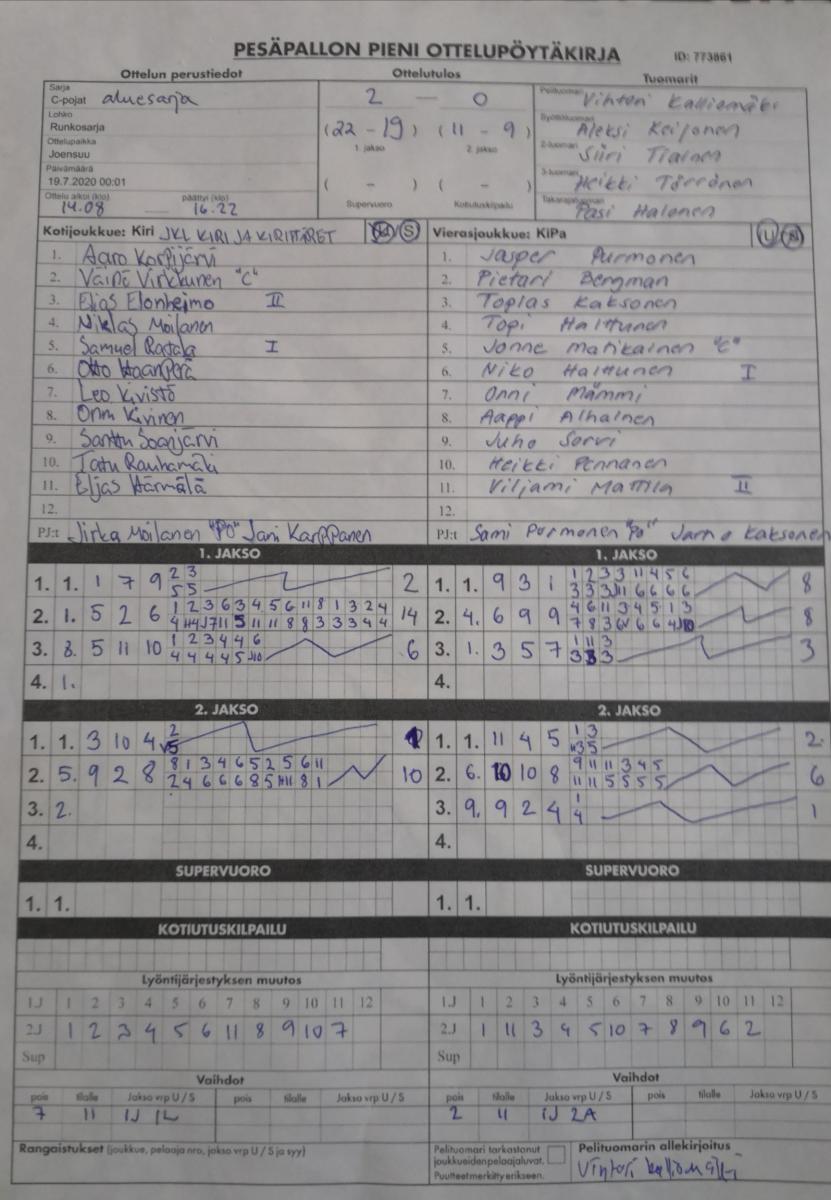 PESÄPALLON PIENI OTTELUPÖYTÄKIRJA ID: 773861
Ottelun perustiedot Ottelutulos Tuomarit
Sarja
C-pojat aluesarja
Lohko
Runkosarja
Ottelupaikka
Joensuu
Päivämäärä
19.7.2020 00:01
Ottelu alkoi (klo) päättyi (klo)
14.08 16.22
2 — 0
(22 - 19) (11 - 9)
1. jakso 2. jakso
( - ) ( - )
Supervuoro Kotiutuskilpailu
Pelituomari Vihtori Kalliomäki
Aleksi Keijonen
2-tuomari Siiri Tiainen
3-tuomari Heikki Törrönen
Takarajatuomari Pasi Halonen
Kotijoukkue: Kiri JKL KIRI JA KIRITTÄRET S
1. Aaro Korpijärvi
2. Väinö Virkkunen "C"
3. Elias Elonheimo II
4. Niklas Moilanen
5. Samuel I
6. Otto Haanperä
7. Leo Kivistö
8. Onni Kivinen
9. Santtu Soanjärvi
10. Tatu Rauhamäki
11. Eljas Härmälä
12.
PJ:t Jirka Moilanen "PO" Jani Karppanen
Vierasjoukkue: KiPa U
1. Jasper Purmonen
2. Pietari Bergman
3. Topias Kaksonen
4. Topi Halttunen
5. Jonne Matikainen "C"
6. Niko Halttunen I
7. Onni Mämmi
8. Aappi Alhainen
9. Juho Sorvi
10. Heikki Pennanen
11. Viljami Mattila II
12.
PJ:t Sami Purmonen "Po" Jarno Kaksonen
1. JAKSO 1. JAKSO
1. 1. 1 7 9 2 3
5 5 2
2. 1. 5 2 6 1 2 3 6 3 4 5 6 11 8 1 3 2 4
14
3. 8. 5 11 10 1 2 3 4 4 6
4 4 4 4 5 10 6
4. 1.
1. 1. 9 3 1 1 2 3 3 11 4 5 6
8
2. 4. 6 9 9 4 6 11 3 4 5 1 3
8
3. 1. 3 5 7 1 11 3
3 3 3 3
4.
2. JAKSO 2. JAKSO
1. 1. 3 10 4 2
5 1
2. 5. 9 2 8 8 1 3 4 6 5 2 5 6 11
10
3. 2.
4.
1. 1. 11 4 5 1 3
2
2. 6. 10 10 8 9 11 11 3 4 5
11 11 5 5 5 5 6
3. 9. 9 2 4 1
4 1
4.
SUPERVUORO SUPERVUORO
1. 1. 1. 1.
KOTIUTUSKILPAILU KOTIUTUSKILPAILU
Lyöntijärjestyksen muutos Lyöntijärjestyksen muutos
1J 1 2 3 4 5 6 7 8 9 10 11 12
2J 1 2 3 4 5 6 11 8 9 10 7
Sup
1J 1 2 3 4 5 6 7 8 9 10 11 12
2J 1 11 3 4 5 10 7 8 9 6 2
Sup
Vaihdot Vaihdot
pois tilalle Jakso vrp U / S pois tilalle Jakso vrp U / S
7 11 1J 1L
pois tilalle Jakso vrp U / S pois tilalle Jakso vrp U / S
2 11 1J 2A
Rangaistukset (joukkue, pelaaja nro, jakso vrp U / S ja syy)
Pelituomari tarkastanut
joukkueiden pelaajaluvat.
Puutteet merkitty erikseen.
Pelituomarin allekirjoitus
Vihtori Kalliomäki